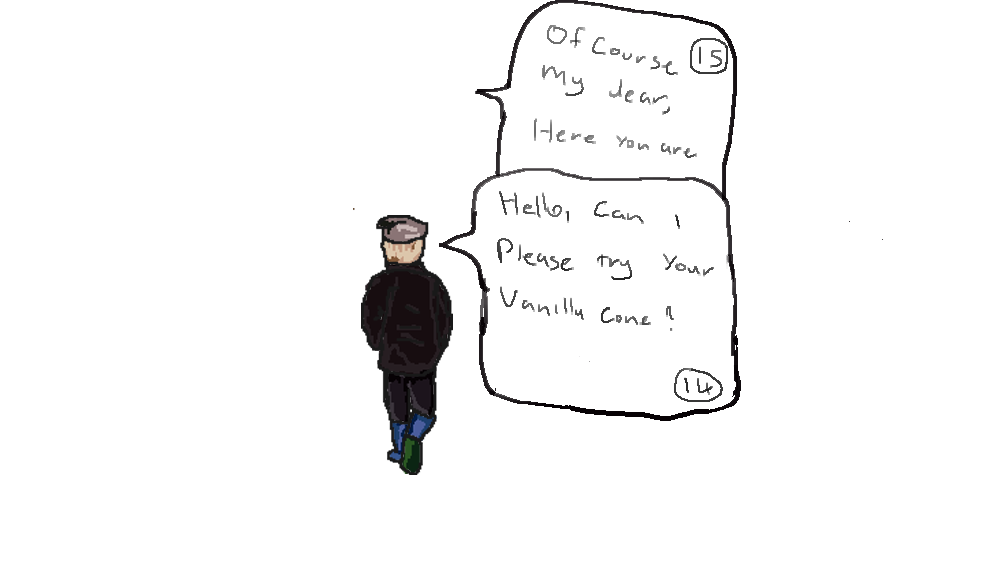 Of Course 15
My dear,
Here you are
Hello, Can i
Please try your
Vanilla Cone?
14